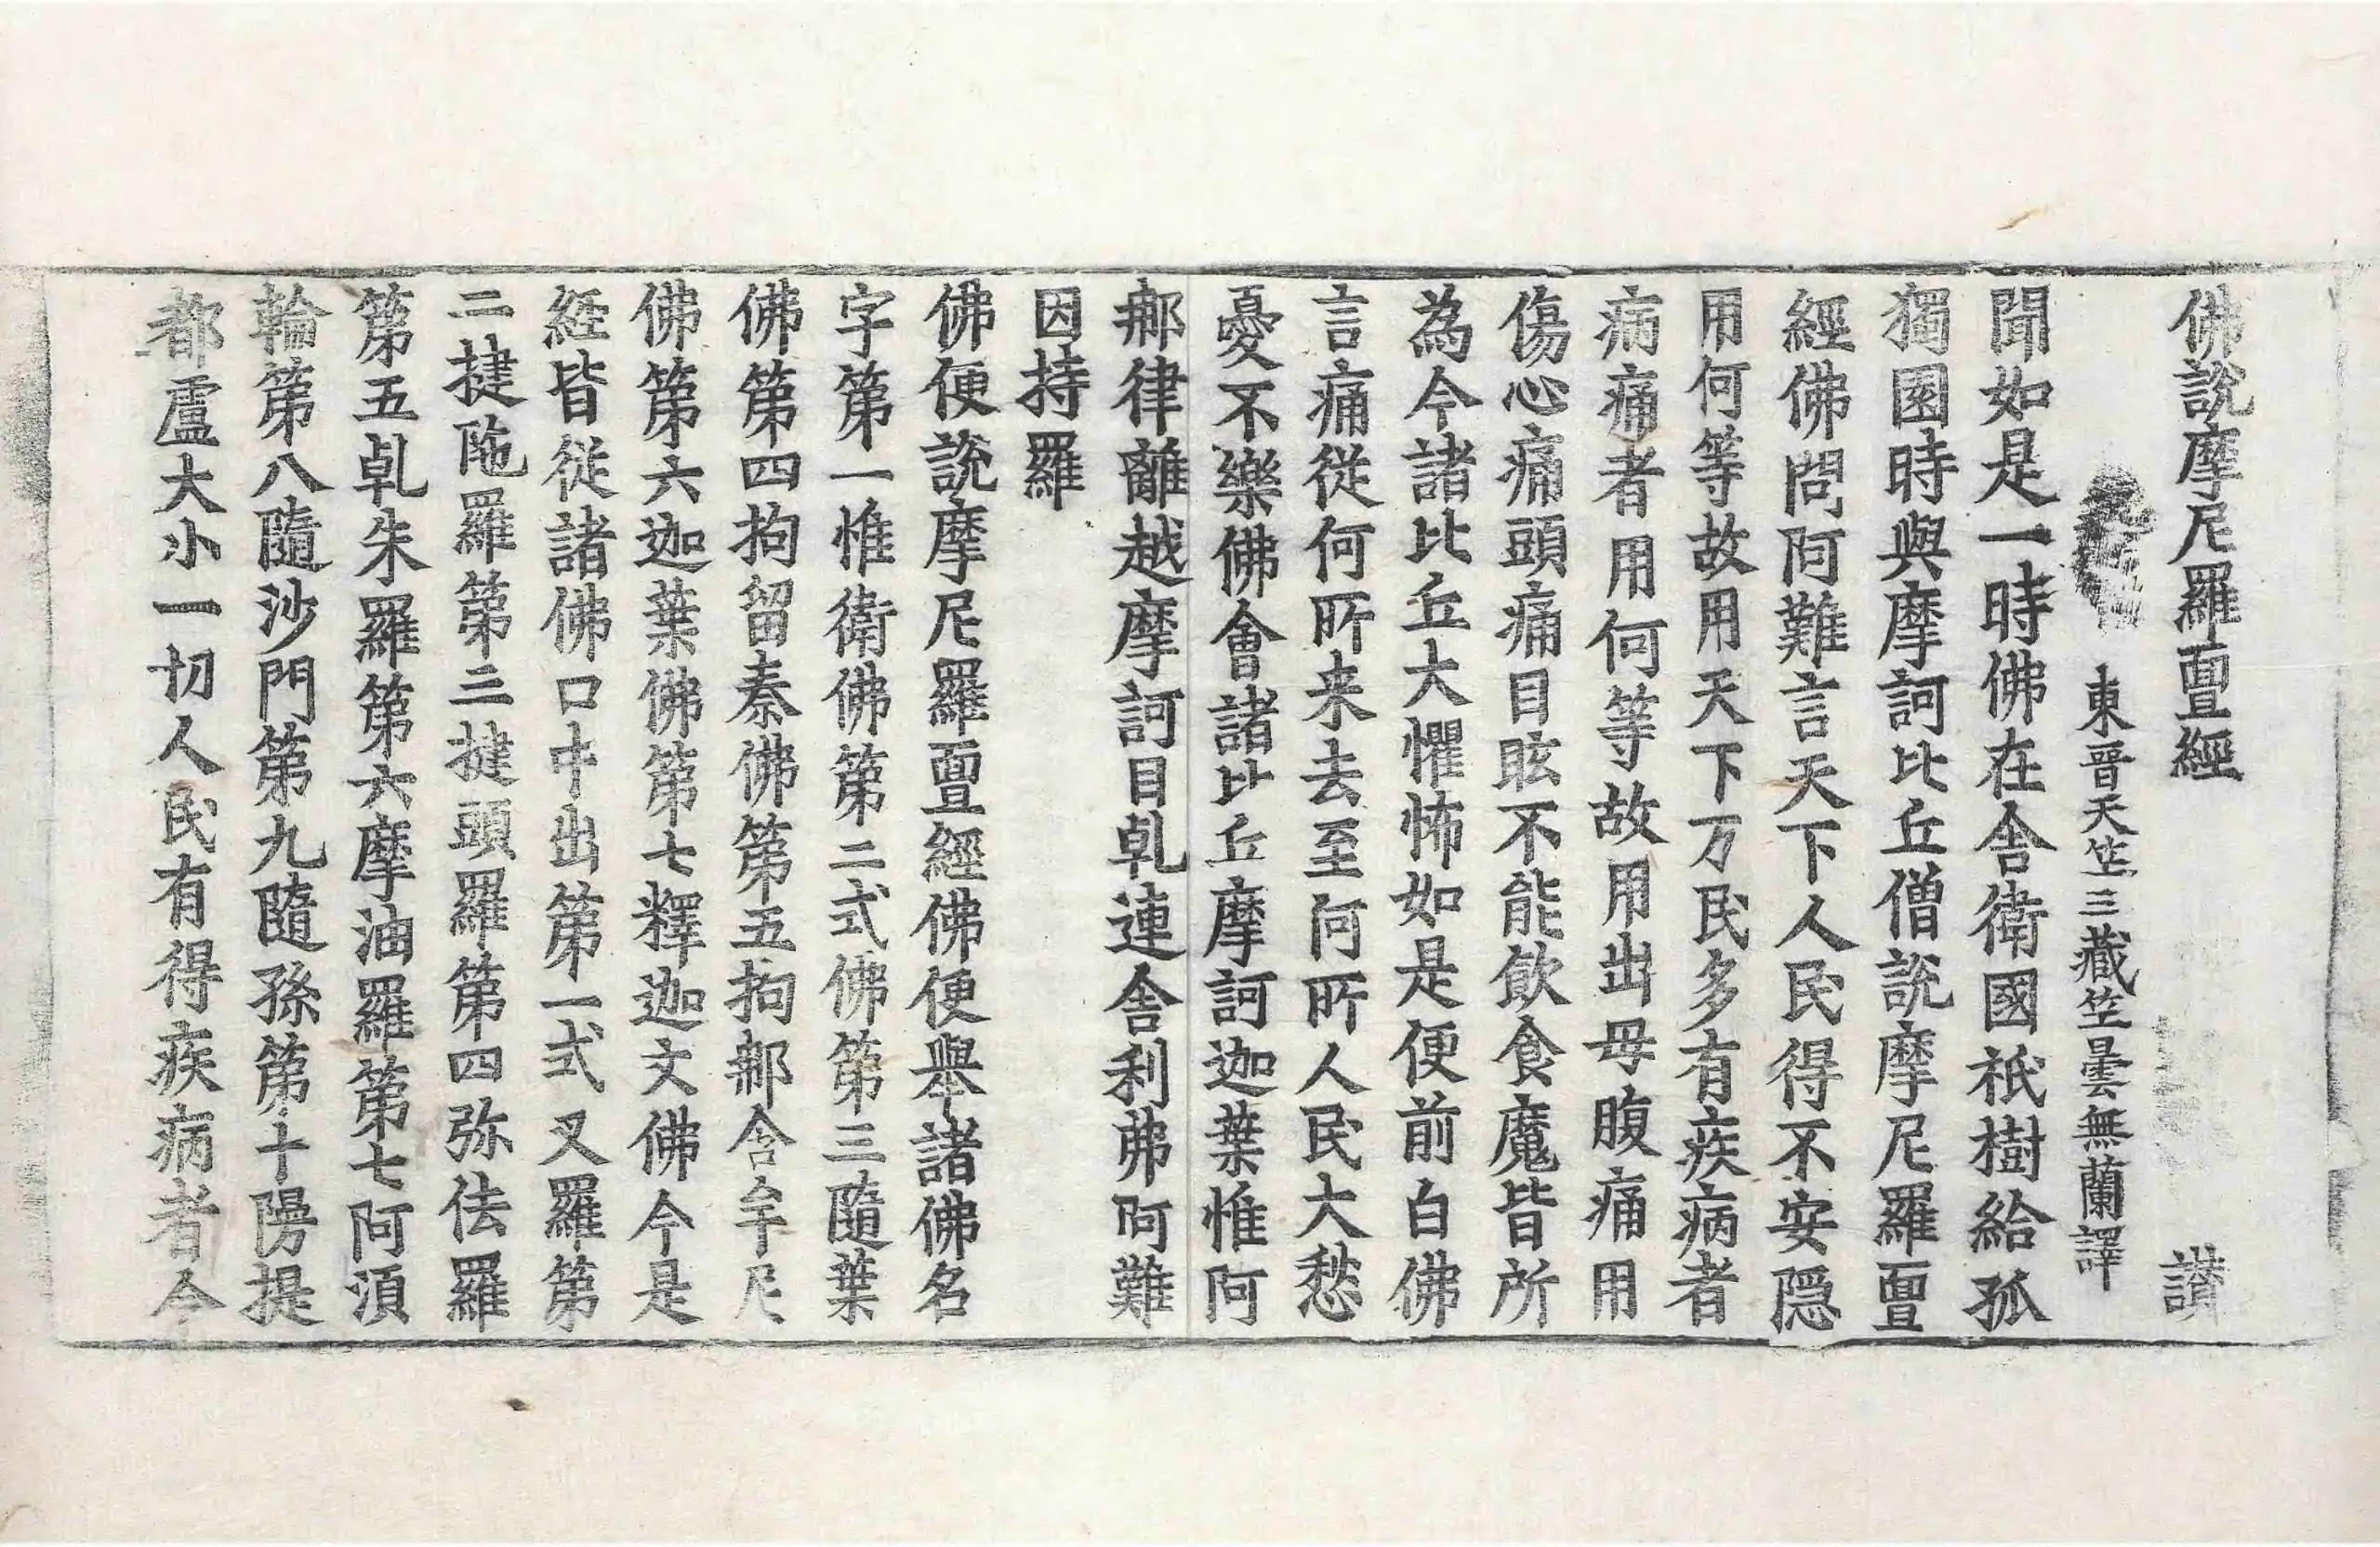 佛說摩尼羅亶經　讃
東晉天竺三藏竺曇無蘭譯
聞如是一時佛在舍衛國祇樹給孤
獨園時與摩訶比丘僧說摩尼羅亶
經佛問阿難言天下人民得不安隱
用何等故用天下万民多有疾病者
病痛者用何等故用出母腹痛用
傷心痛頭痛目眩不能飲食魔皆所
為今諸比丘大懼怖如是便前白佛
言痛從何所来去至何所人民大愁
憂不樂佛會諸比丘摩訶迦葉惟阿
那律離越摩訶目乹連舍利弗阿難
因持羅
佛便說摩尼羅亶經佛便舉諸佛名
字第一惟衛佛第二式佛第三隨葉
佛第四拘留秦佛第五拘那含牟尼
佛第六迦葉佛第七釋迦文佛今是
經皆從諸佛口中出第一式叉羅第
二揵陁羅第三揵頭羅第四弥佉羅
第五乹朱羅第六摩油羅第七阿湏
輪第八隨沙門第九隨孫第十隝提
都盧大小一切人民有得疾病者今